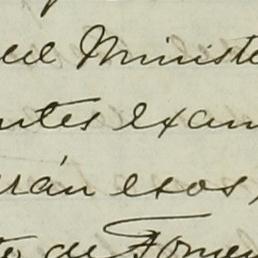 del Ministe
ntes exam
rán esos,
to de Fomen